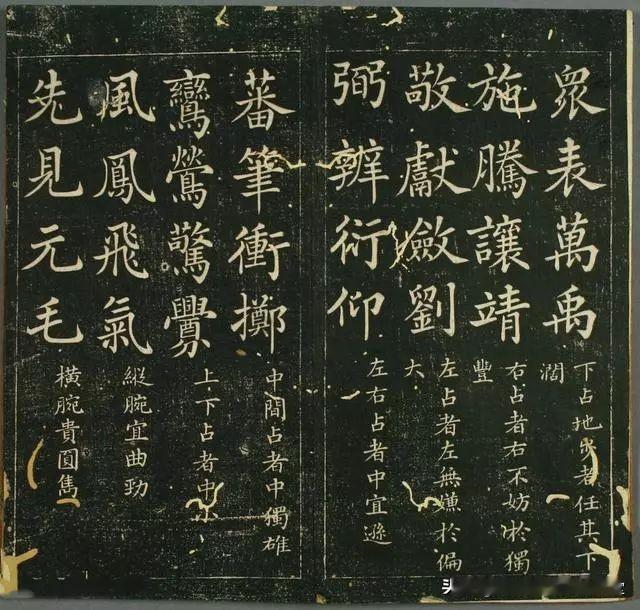 眾表萬禹 下占地步者任其下闊
施騰讓靖 右占者右不妨於獨豐
敬獻斂劉 左占者左無嫌於偏大
弼辨衍仰 左右占者中宜遜
蕃筆衝擲 中間占者中獨雄
鸞鶯驚釁 上下占者中小
風鳳飛氣 縱腕宜曲勁
先見元毛 橫腕貴圓雋